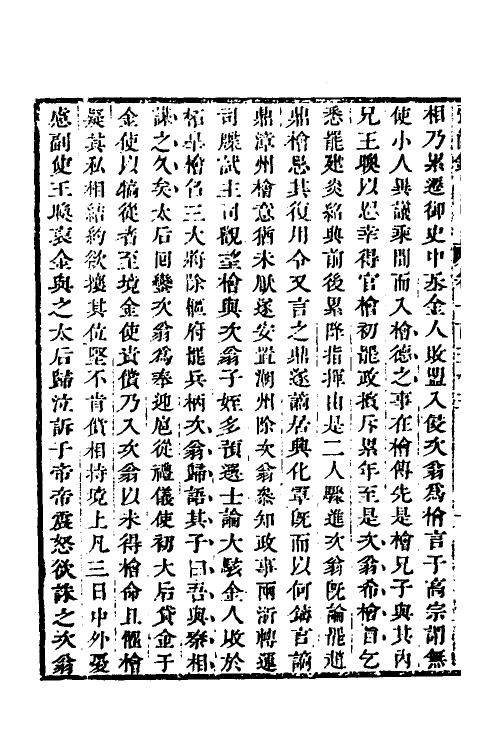 相乃累遷御史中丞金人敗盟入侵次翁爲檜言于高宗謂無
使小人異議乘間而入檜德之事在檜傳先是檜兄子與其內
兄王㬇以恩幸得官檜初罷政擯斥累年至是次翁希檜旨乞
悉罷建炎紹興前後累降指揮由是二人驟進次翁旣論罷趙
鼎檜忌其復用令又言之鼎遂謫居興化軍旣而以何鑄言謫
鼎漳州檜意猶未厭遂安置潮州除次翁叅知政事兩浙轉運
司牒試主司觀望檜與次翁子姪多預選士論大駭金人敗於
柘臯檜召三大將除樞府罷兵柄次翁歸語其子曰吾與秦相
謀之久矣太后回鑾次翁爲奉迎扈從禮儀使初太后貸金于
金使以犒從者至境金使責償乃入次翁以未得檜命且懼檜
疑其私相結約欲攘其位堅不肯償相持境上凡三日中外憂
慮副使王㬇裒金與之太后歸泣訴于帝帝震怒欲誅之次翁